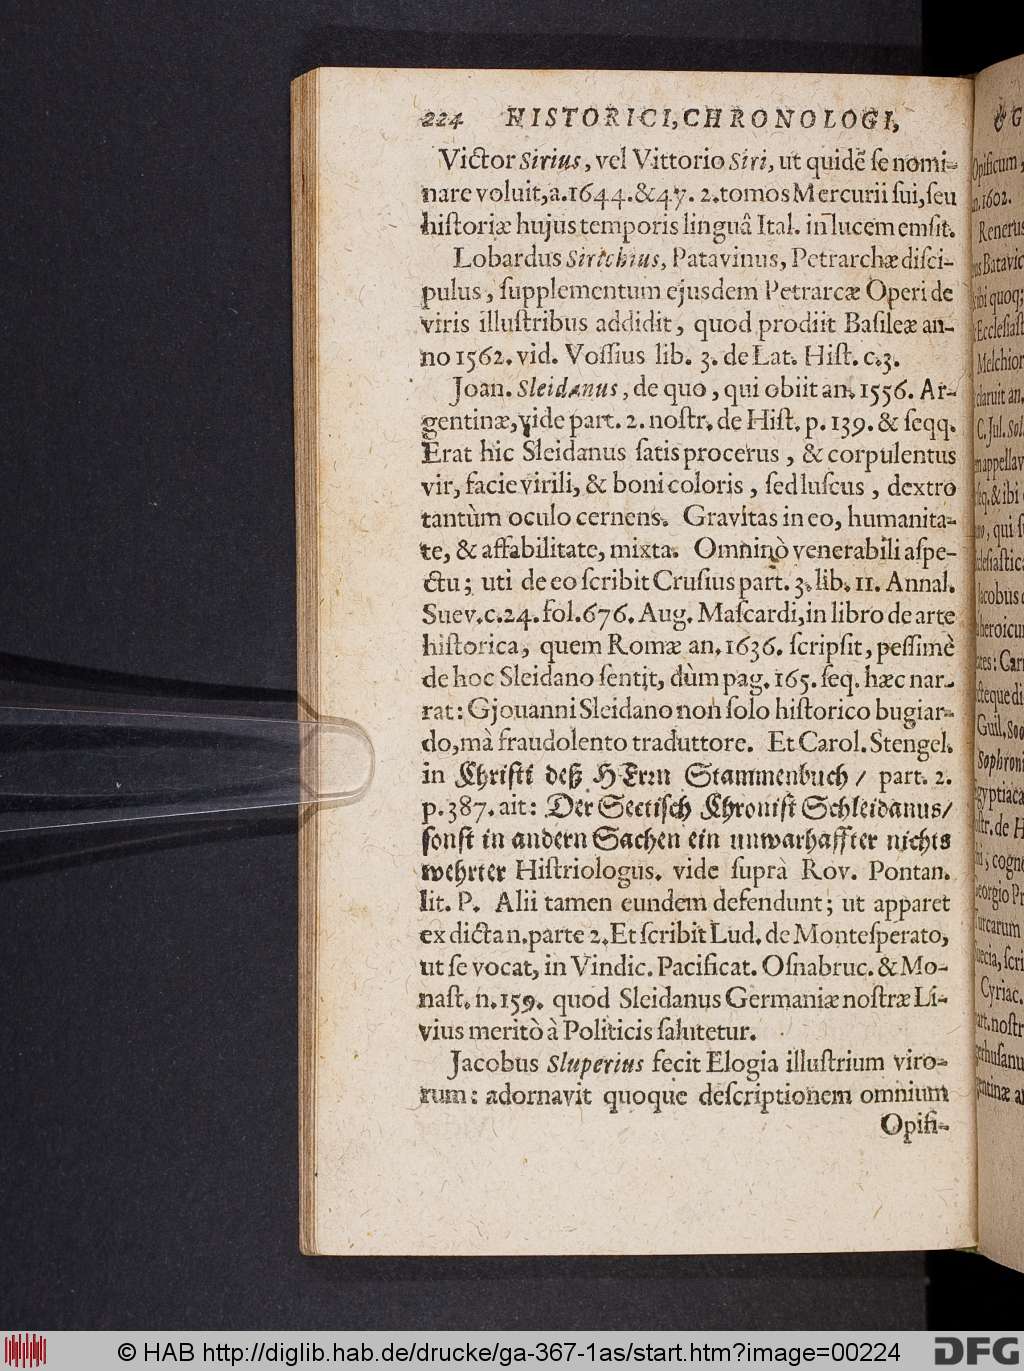 224 HISTORICI, CHRONOLOGI,
Victor Sirius, vel Vittorio Siri, ut quidē ſe nomi-
nare voluit, a. 1644. & 47. 2. tomos Mercurii ſui, ſeu
hiſtoriæ hujus temporis linguâ Ital. in lucem emſit.
Lobardus Sirichius, Patavinus, Petrarchæ diſci-
pulus, ſupplementum ejusdem Petrarcæ Operi de
viris illuſtribus addidit, quod prodiit Baſileæ an-
no 1562. vid. Voſſius lib. 3. de Lat. Hiſt. c. 3.
Joan. Sleidanus, de quo, qui obiit an. 1556. Ar-
gentinæ, vide part. 2. noſtr. de Hiſt. p. 139. & ſeqq.
Erat hic Sleidanus ſatis procerus, & corpulentus
vir, facie virili, & boni coloris, ſed luſcus, dextro
tantùm oculo cernens. Gravitas in eo, humanita-
te, & affabilitate, mixta. Omninò venerabili aſpe-
ctu; uti de eo ſcribit Cruſius part. 3. lib. 11. Annal.
Suev. c. 24. fol. 676. Aug. Maſcardi, in libro de arte
hiſtorica, quem Romæ an. 1636. ſcripſit, peſſimè
de hoc Sleidano ſentit, dùm pag. 165. ſeq. hæc nar-
rat: Gjouanni Sleidano non ſolo hiſtorico bugiar-
do, mà fraudolento traduttore. Et Carol. Stengel.
in Chriſti deß HErrn Stammenbuch / part. 2.
p. 387. ait: Der Sectiſch Chroniſt Schleidanus/
ſonſt in andern Sachen ein unwarhaffter nichts
wehrter Hiſtriologus. vide ſuprà Rov. Pontan.
lit. P. Alii tamen eundem defendunt; ut apparet
ex dicta n. parte 2. Et ſcribit Lud. de Monteſperato,
ut ſe vocat, in Vindic. Pacificat. Oſnabruc. & Mo-
naſt. n. 159. quod Sleidanus Germaniæ noſtræ Li-
vius meritò à Politicis ſalutetur.
Jacobus Sluperius fecit Elogia illuſtrium viro-
rum: adornavit quoque deſcriptionem omnium
Opifi-
Opificum,
n. 1602.
Renertus
Batavic
ibi quoq;
Eccleſiaſt
Melchior
claruit an.
C. Jul. Sol
appellav
& ibi
, qui ſ
Jacobus
heroicu
: Car
que di
Guil. Soo
Sophroni
gyptiaca
ſtr. de H
; cogn
eorgio Pr
urcarum
, ſcri
Cyriac.
noſtr
© HAB http://diglib.hab.de/drucke/ga-367-1as/start.htm?image=00224
DFG